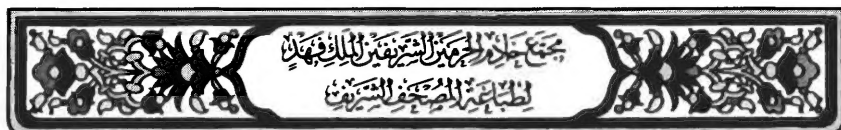 مُجَمَّع خَادِم الحَرَمَيْن الشَّرِيفَيْن المَلِك فَهْد
لِطِبَاعَة المُصْحَف الشَّرِيف